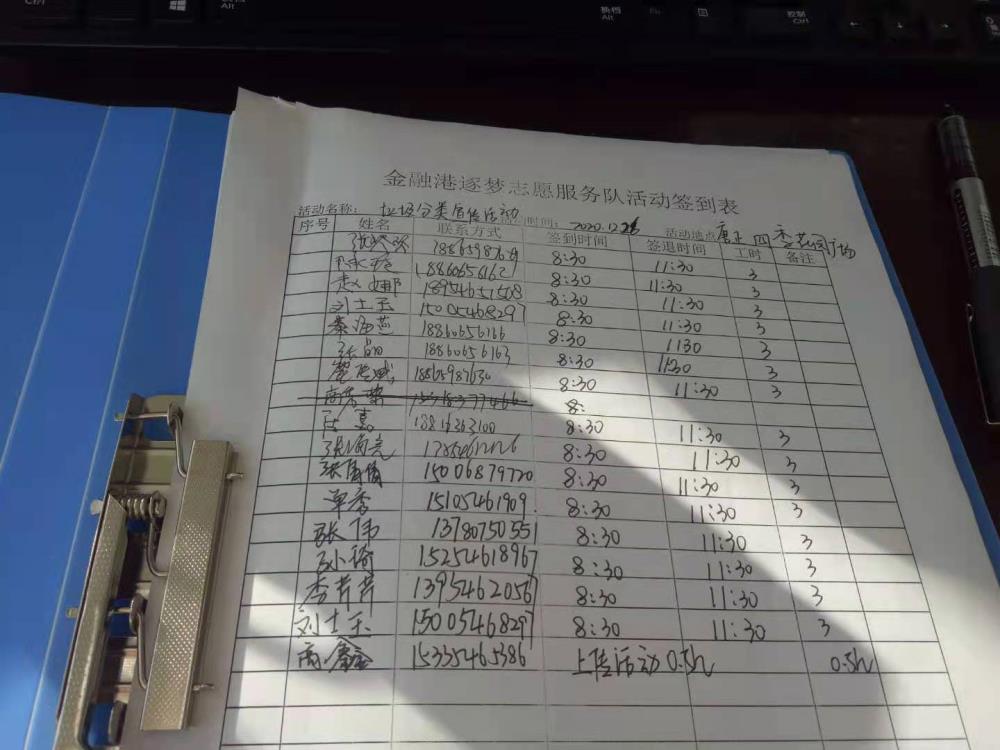 Alt
换档
Alt
控制
Ctrl
金融港逐梦志愿服务队活动签到表
活动名称: 垃圾分类宣传活动 时间: 2020.12.26 活动地点 康正四季花园广场
序号 姓名 联系方式 签到时间 签退时间 工时 备注
8:30 11:30 3
18860656162 8:30 11:30 3
赵娜 18954651508 8:30 11:30 3
刘士玉 15005468297 8:30 11:30 3
秦海燕 18860656166 8:30 1130 3
张 18860656163 8:30 11:30 3
18865987630 8:30 11:30 3
8:
8:30 11:30 3
8:30 11:30 3
张 15006879720 8:30 11:30 3
单秀 15105461909 8:30 11:30 3
张伟 13780750551 8:30 11:30 3
孙琦 15254618967 8:30 11:30 3
李芹芹 13954620567 8:30 11:30 3
刘士玉 15005468297 8:30 11:30 3
商 15335465386 上传活动0.5h 0.5h